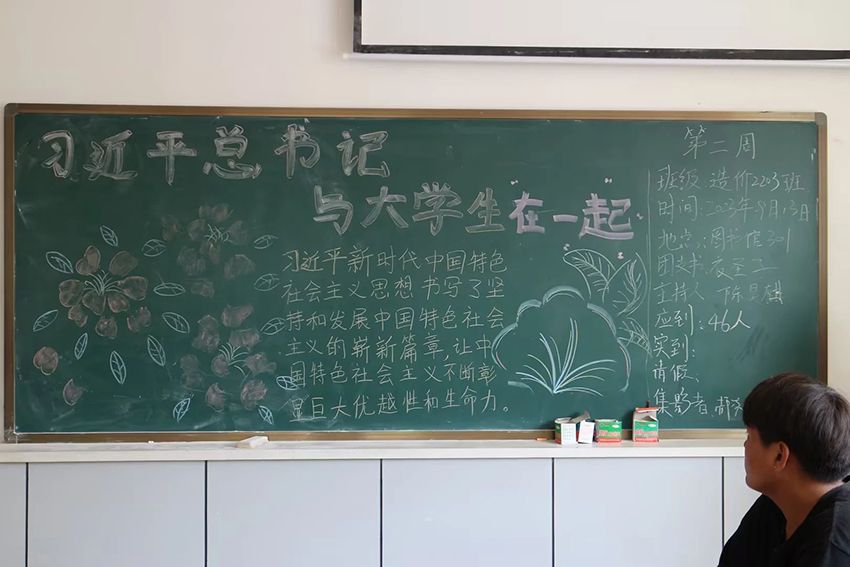 习近平总书记
与大学生"在一起"
习近平新时代中国特色
社会主义思想书写了坚
持和发展中国特色社会
主义的崭新篇章,让中
国特色社会主义不断彰
显巨大优越性和生命力。
第二周
班级:造价2203班
时间:2023年9月13日
地点:图书馆301
团支书:
主持人
应到:46人
实到:
请假:
集